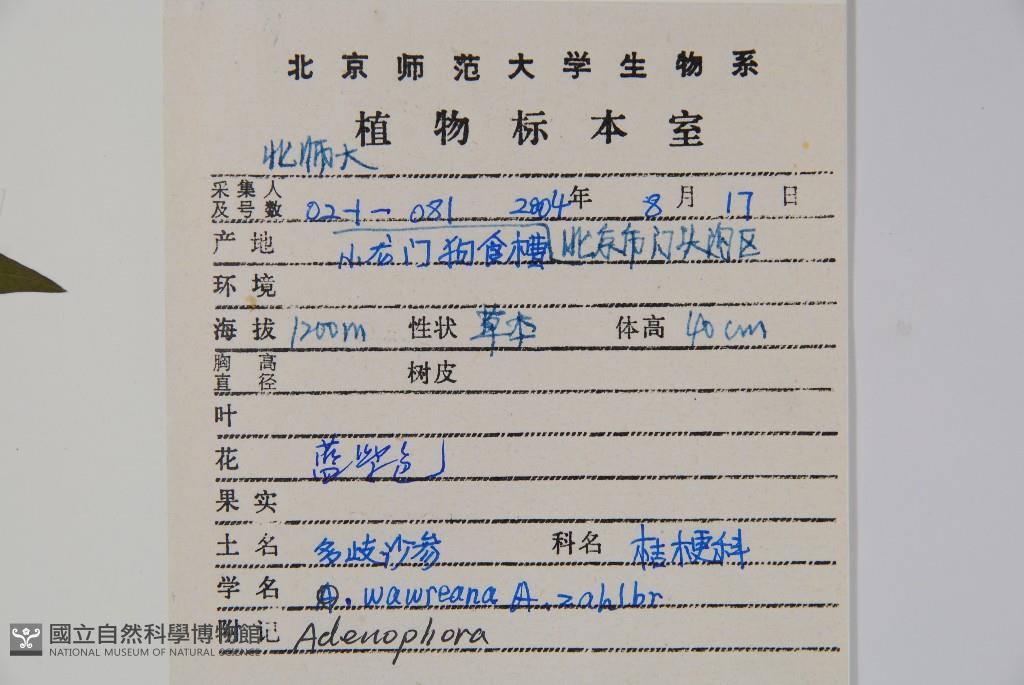 北京师范大学生物系
植物标本室
北师大
采集人及号数 02-1-081 2004年 8月 17日
产地 小龙门狗食槽 北京市门头沟区
环境
海拔 1200m 性状 草本 体高 40cm
胸高直径 树皮
叶
花 蓝紫色
果实
土名 多歧沙参 科名 桔梗科
学名 A. wawreana A. zahlbr
附记 Adenophora
國立自然科學博物館
NATIONAL MUSEUM OF NATURAL SCIENCE